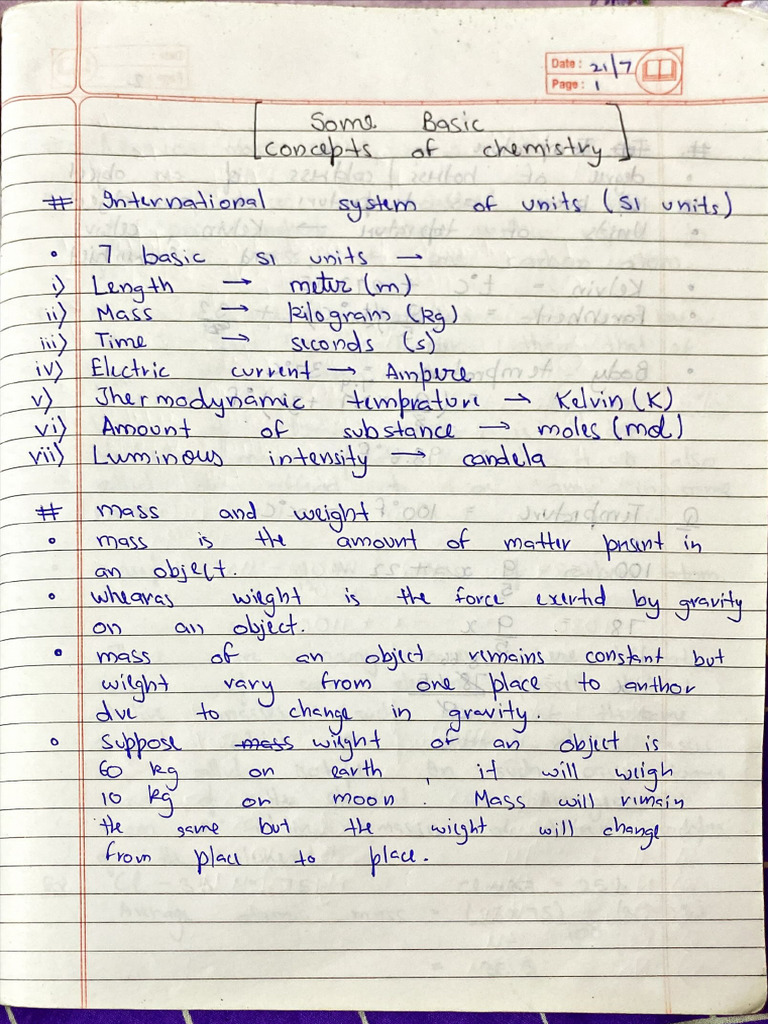 Date: 21/7
Page: 1
[Some Basic
concepts of chemistry]
# International system of units (SI units)
• 7 basic SI units →
i) Length → meter (m)
ii) Mass → kilogram (kg)
iii) Time → seconds (s)
iv) Electric current → Ampere
v) Thermodynamic temprature → Kelvin (K)
vi) Amount of substance → moles (mol)
vii) Luminous intensity → candela
# mass and weight
• mass is the amount of matter present in
an object.
• whearas wieght is the force exerted by gravity
on an object.
• mass of an object remains constant but
wieght vary from one place to anthor
due to change in gravity.
• Suppose mass wieght of an object is
60 kg on earth, it will weigh
10 kg on moon. Mass will remain
the same but the wieght will change
from place to place.